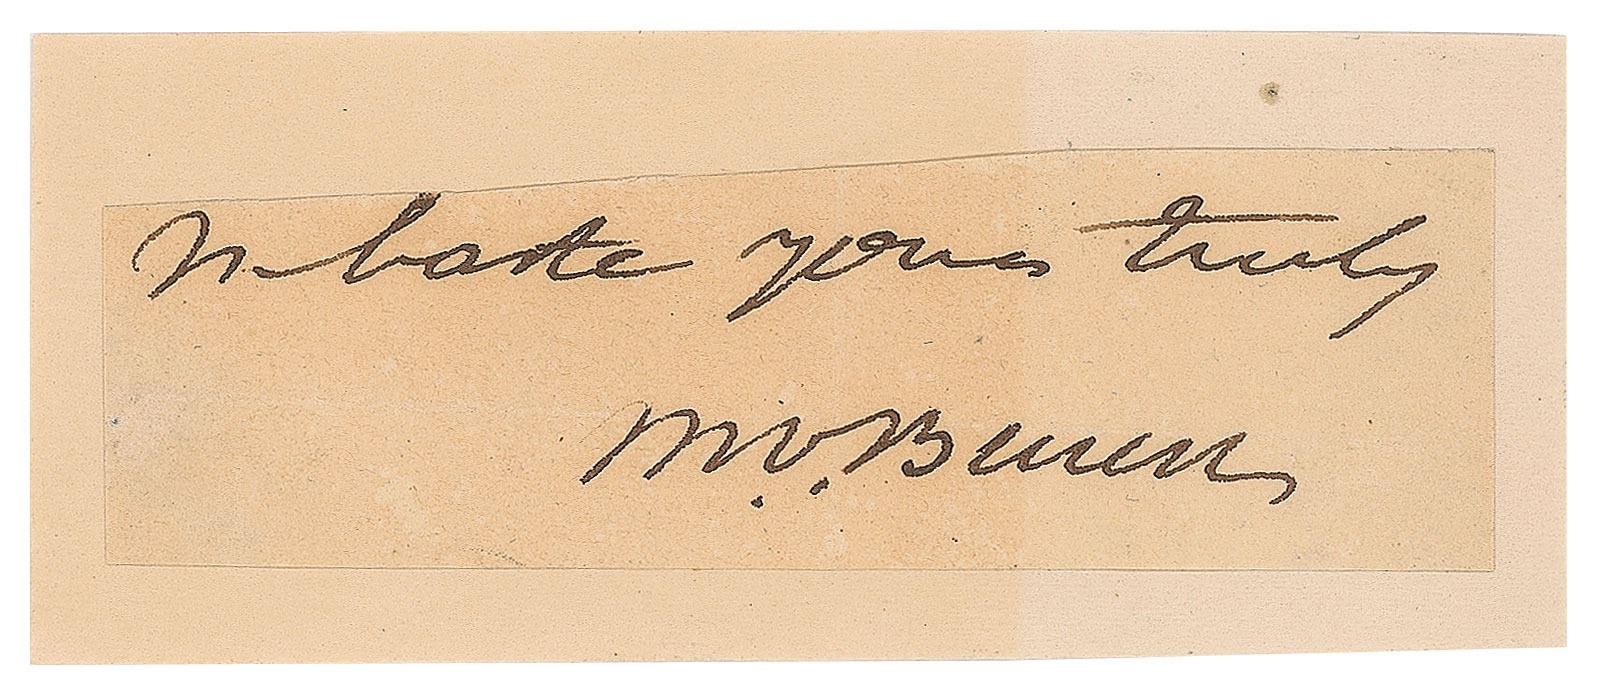 In haste yours truly
M.V.Buren